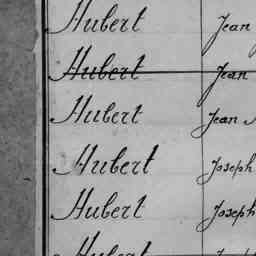 Hubert Jean
Hubert Jean
Hubert Jean
Hubert Joseph
Hubert Joseph
Hubert